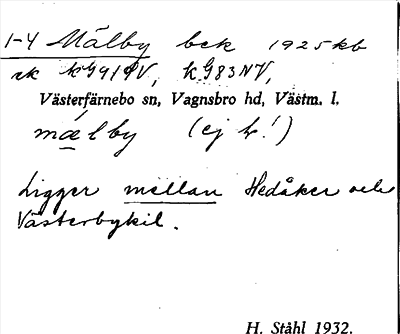 1-4 Mälby bek 1925 kb
ek kG91ØV, kG83NV,
Västerfärnebo sn, Vagnsbro hd, Västm. l.
mælby (ej h!)
Ligger mellan Hedåker och
Västerbykil.
H. Ståhl 1932.